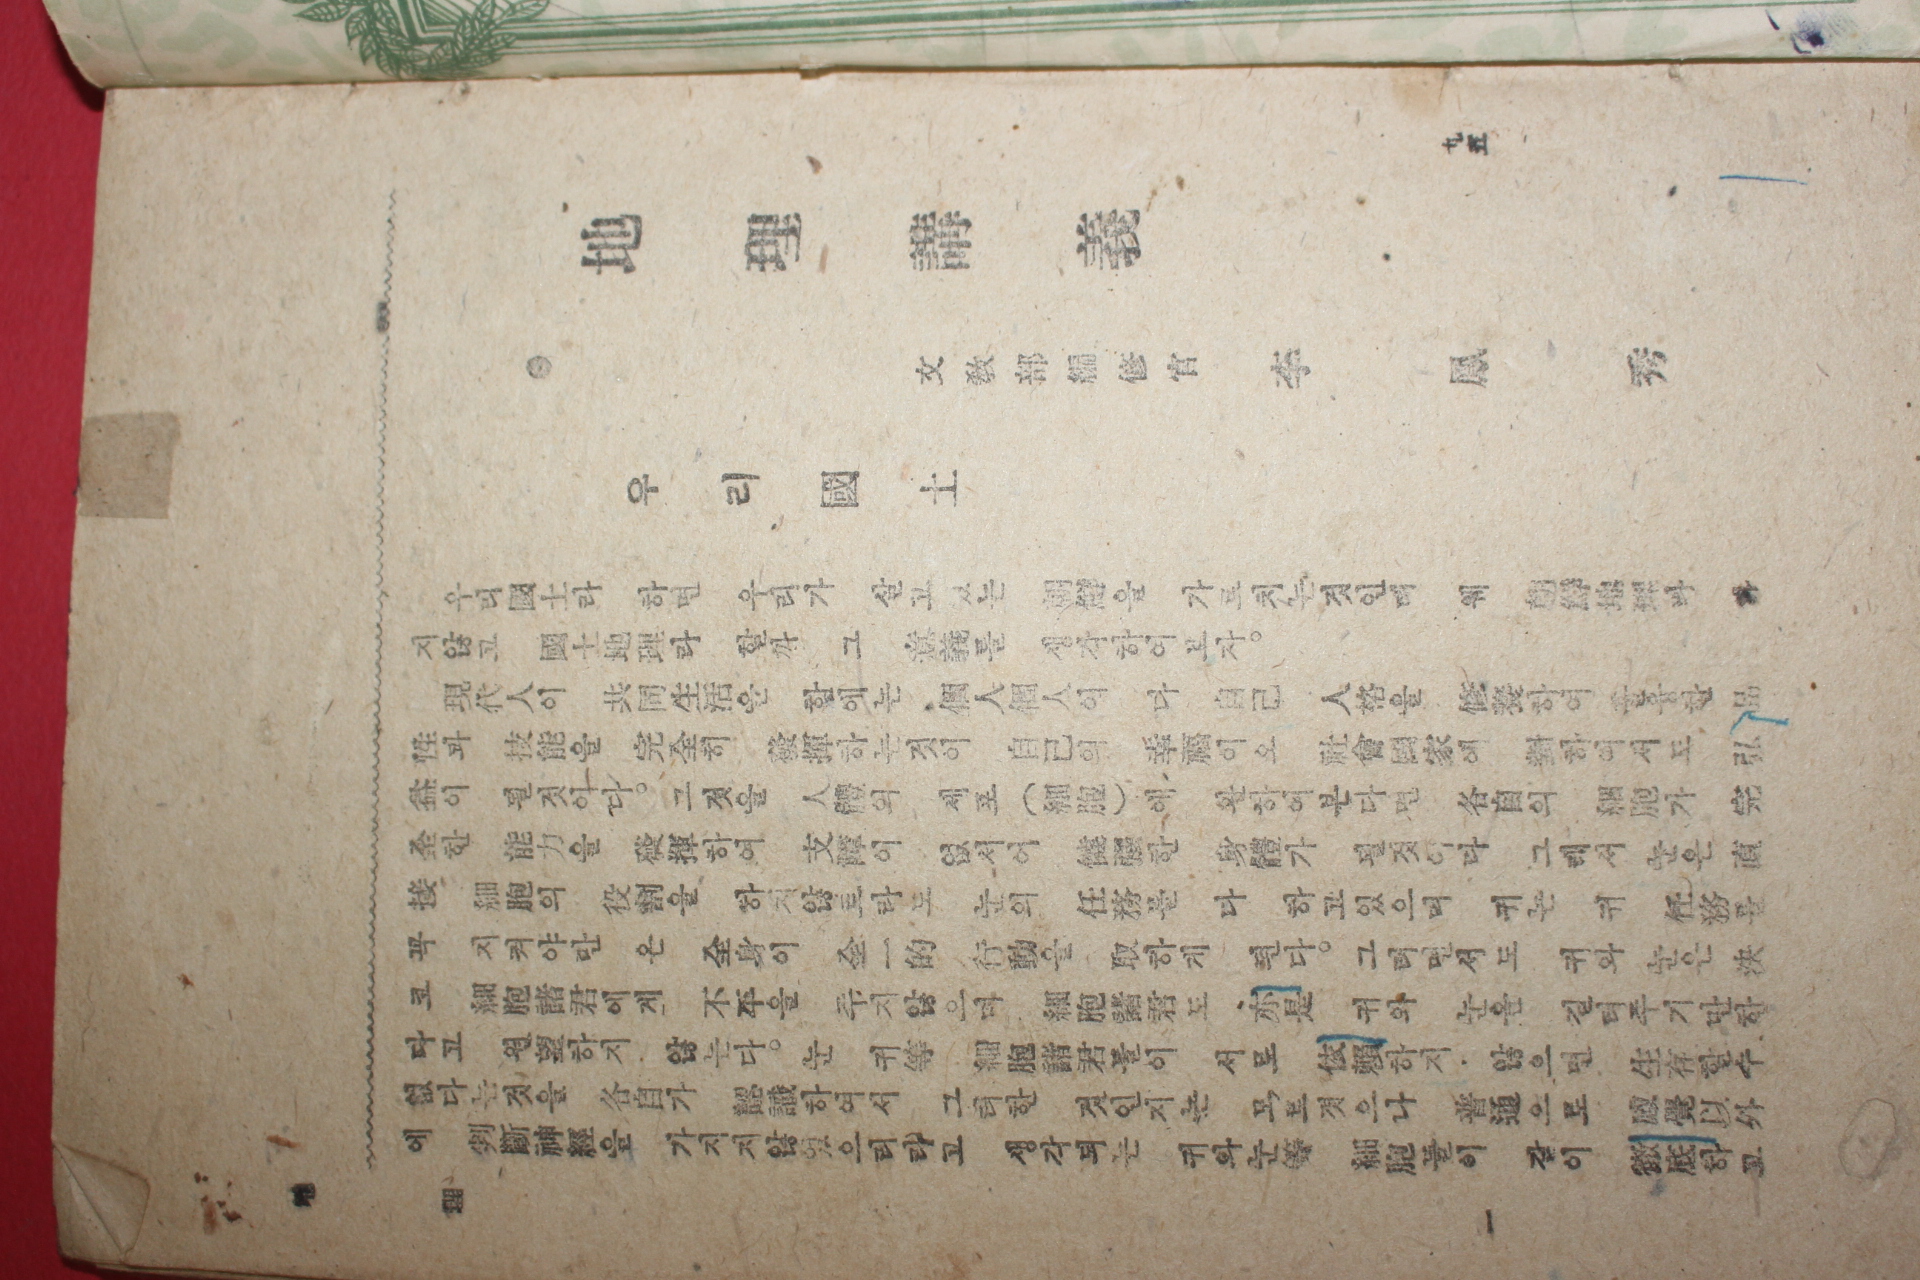 九五
地理講義
文敎部編修官 李鳳秀
우리國土
우리國土라 하면 우리가 살고 있는 를 가르치는것인데 왜 라 하
지않고 國土地理라 할까 그 를 생각하여보자。
現代人이 共同生活을 할에는 個人個人이 다 自己 人格을 修養하여 品
性과 技能을 完全히 發揮하는것이 自己의 幸福이오 社會國家에 對하여서도 弘
益이 될것이다。그것을 人體의 세포(細胞)에 하여본다면 各自의 細胞가 完
全한 能力을 發揮하여 支障이 없서야 健康한 身體가 될것이다 그래서 눈은 直
接 細胞의 役割을 하지않드라도 눈의 任務를 다 하고있으며 귀는 귀 任務를
꼭 지켜야만 온 全身이 全一的 行動을 取하게 된다。그러면서도 귀와 눈은 決
코 細胞諸君에게 不平을 주지않으며 細胞諸君도 亦是 귀와 눈을 만한
다고 원望하지 않는다。눈 귀等 細胞諸君들이 서로 依賴하지 않으면 生存할수
없다는것을 各自가 認識하여서 그러한 것인지는 모르것으나 普通으로 感覺以外
에 判斷神經을 가지지않엇으리라고 생각되는 귀와눈等 細胞들이 같이 徹底하고
地 理
一